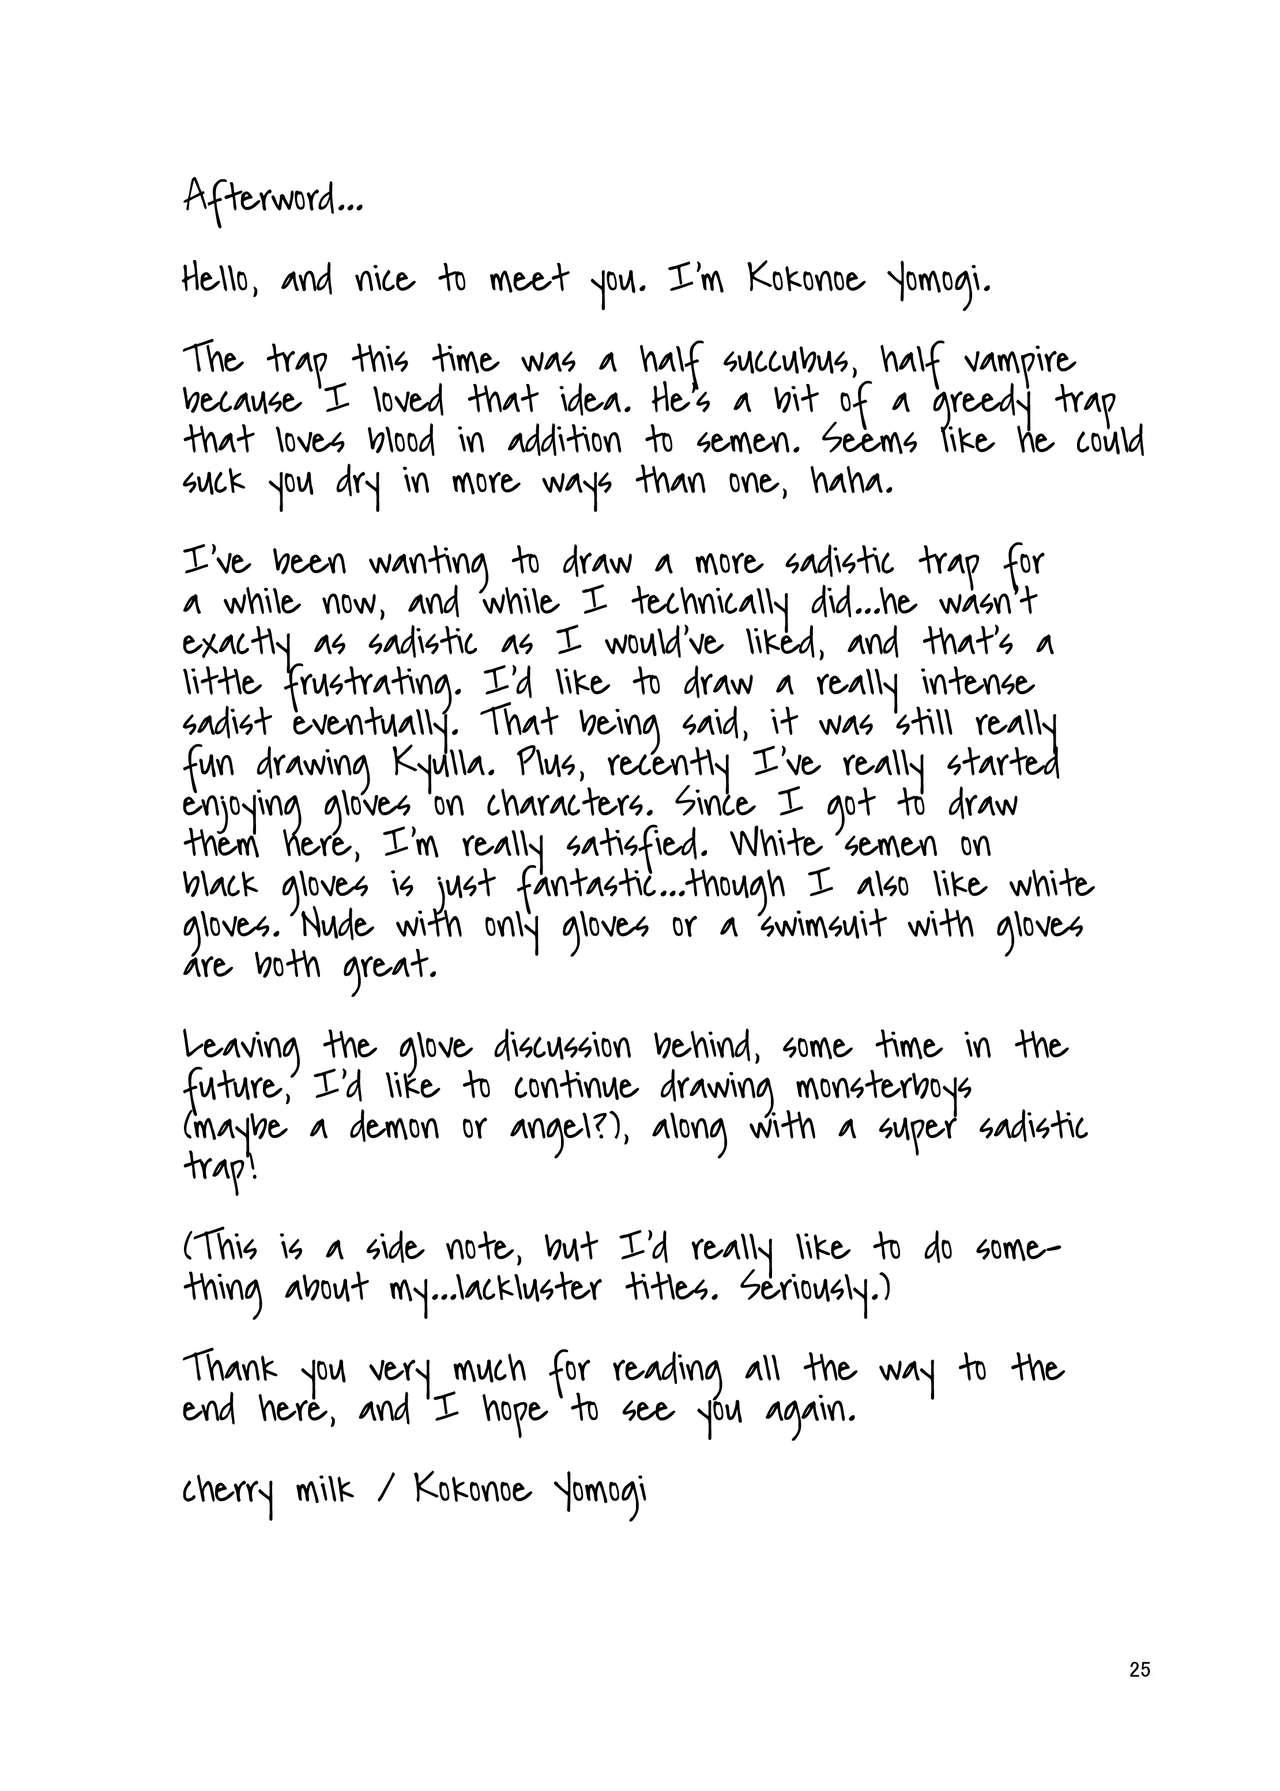 Afterword...
Hello, and nice to meet you. I'm Kokonoe Yomogi.
The trap this time was a half succubus, half vampire
because I loved that idea. He's a bit of a greedy trap
that loves blood in addition to semen. Seems like he could
suck you dry in more ways than one, haha.
I've been wanting to draw a more sadistic trap for
a while now, and while I technically did...he wasn't
exactly as sadistic as I would've liked, and that's a
little frustrating. I'd like to draw a really intense
sadist eventually. That being said, it was still really
fun drawing Kyulla. Plus, recently I've really started
enjoying gloves on characters. Since I got to draw
them here, I'm really satisfied. White semen on
black gloves is just fantastic...though I also like white
gloves. Nude with only gloves or a swimsuit with gloves
are both great.
Leaving the glove discussion behind, some time in the
future, I'd like to continue drawing monsterboys
(maybe a demon or angel?), along with a super sadistic
trap!
(This is a side note, but I'd really like to do some-
thing about my...lackluster titles. Seriously.)
Thank you very much for reading all the way to the
end here, and I hope to see you again.
cherry milk / Kokonoe Yomogi
25